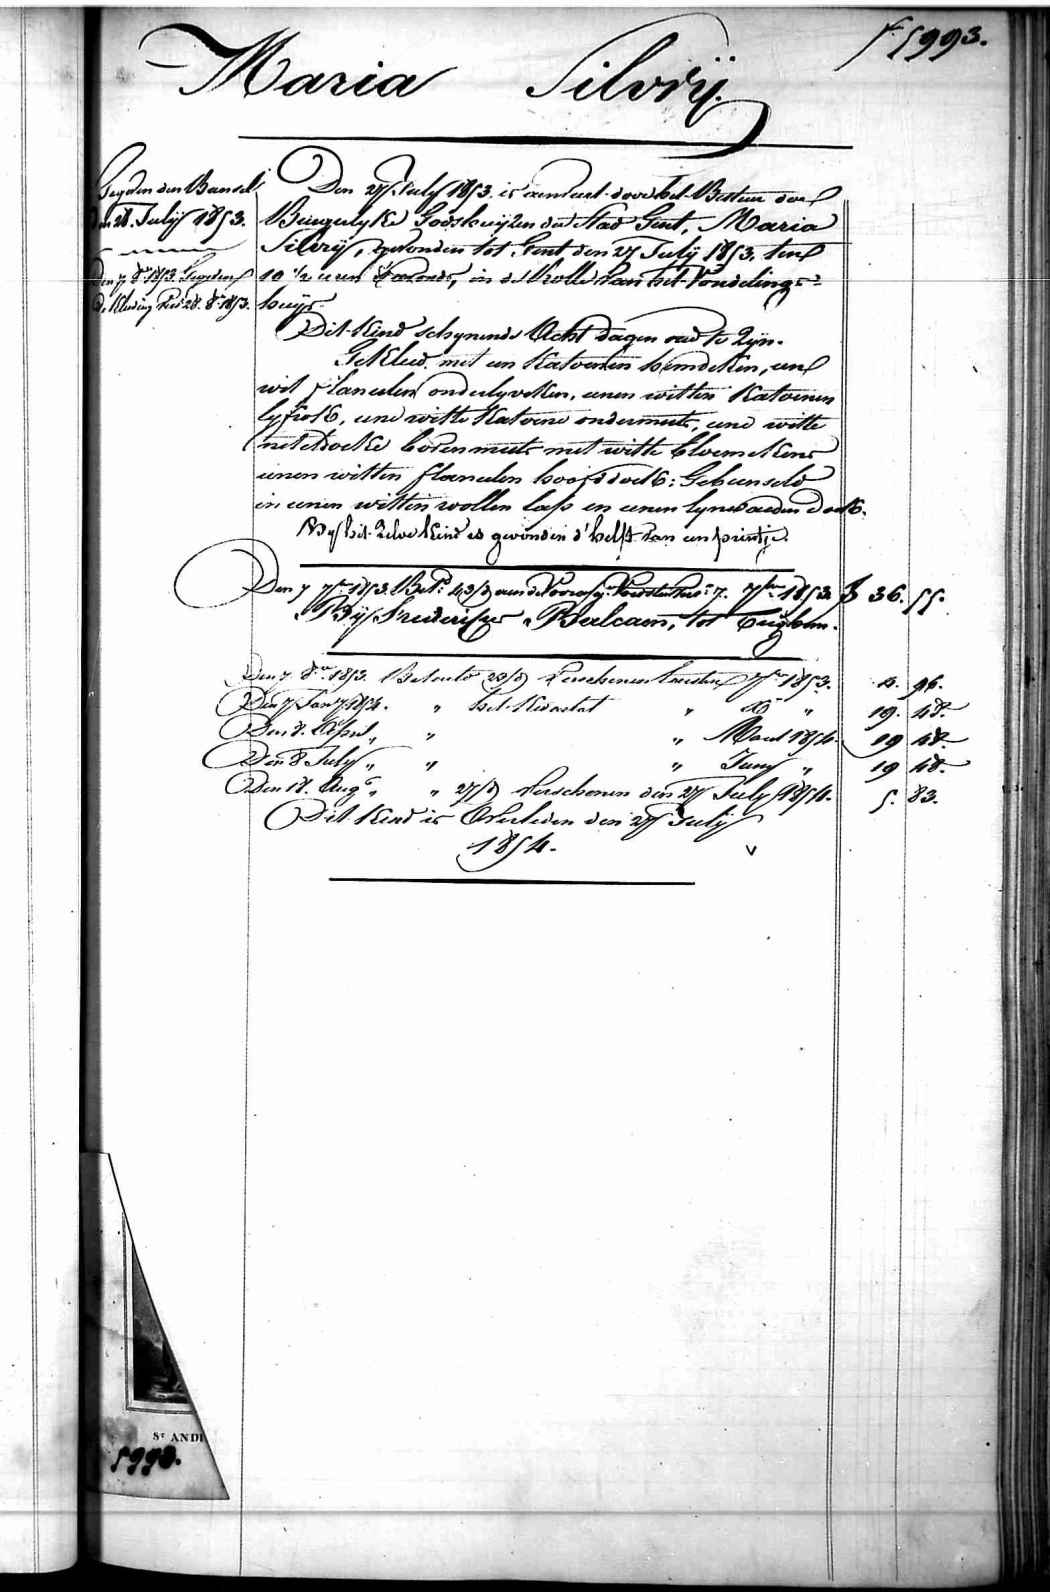 Maria Silvrÿ.
fº 5993.
Gegeven den Bunsel
Den 28. Julij 1853.
Den 7 8er 1853. Gegeven
de Kleeding
Den 27. July 1853. is aenveert door het Bestuer der
Burgerlyke Godshuijzen der Stad Gent, Maria
Silvrÿ, gevonden tot Gent, den 27 July 1853. ten
10 ½ uren s'avonds, in de Rolle van het Vondelings=
huijs.
Dit Kind schynende Acht dagen oud te Zijn.
Gekleed met een Katoenen hemdeken, een
wit flanelen onderlyveken, eenen witten Katoenen
lyfrok, eene witte Katoene ondermuts, eene witte
neteldoeke bovenmuts met witte bloemekens
eenen witten flanelen hoofddoek: Gebunseld
in eenen witten wollen lap en eenen lynwaeden doek.
By het Zelve Kind is gevonden d'helft van een printje.
Den 7 7er 1853. Bet. 43/3 aen de 7. 7er 1853. f 36. 55.
Bÿ Frederikus Balcaen, tot
Den 7. 8er 1853. Betaeld 23/3 Verschenen 7er 1853. 4. 96.
Den 7 Jany 1854. " het Kwartael " Xr " 19. 48.
Den 8. April " " " Maert 1854. 19 48.
Den 8 July " " " Juny " 19 48.
Den 18. Augs " " 27/3 Verschenen den 27 July 1854. 5. 83.
Dit Kind is Overleden den 27 Julij
1854.
St ANDR
5993.